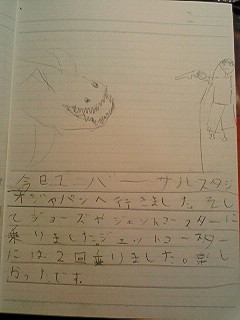 今日ユニバーサルスタジ
オジャパンへ行きました。そし
てジョーズやジェットコースターに
乗りました。ジェットコースター
には2回乗りました。楽し
かったです。